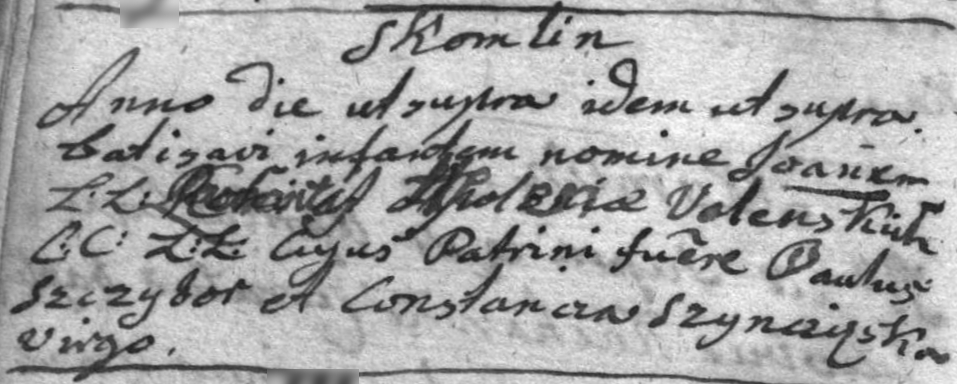 Skomlin
Anno die ut supra idem ut supra.
batisavi infantem nomine Joanem
L:L: Valenskich
C:C: L:L: Cujus Patrini fuere Paulus
Szczybor et Constancia
virgo.